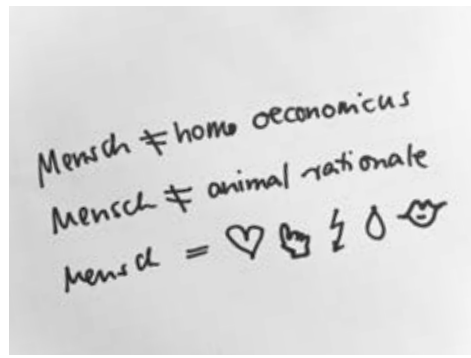 Mensch ≠ homo oeconomicus
Mensch ≠ animal rationale
Mensch = ♡